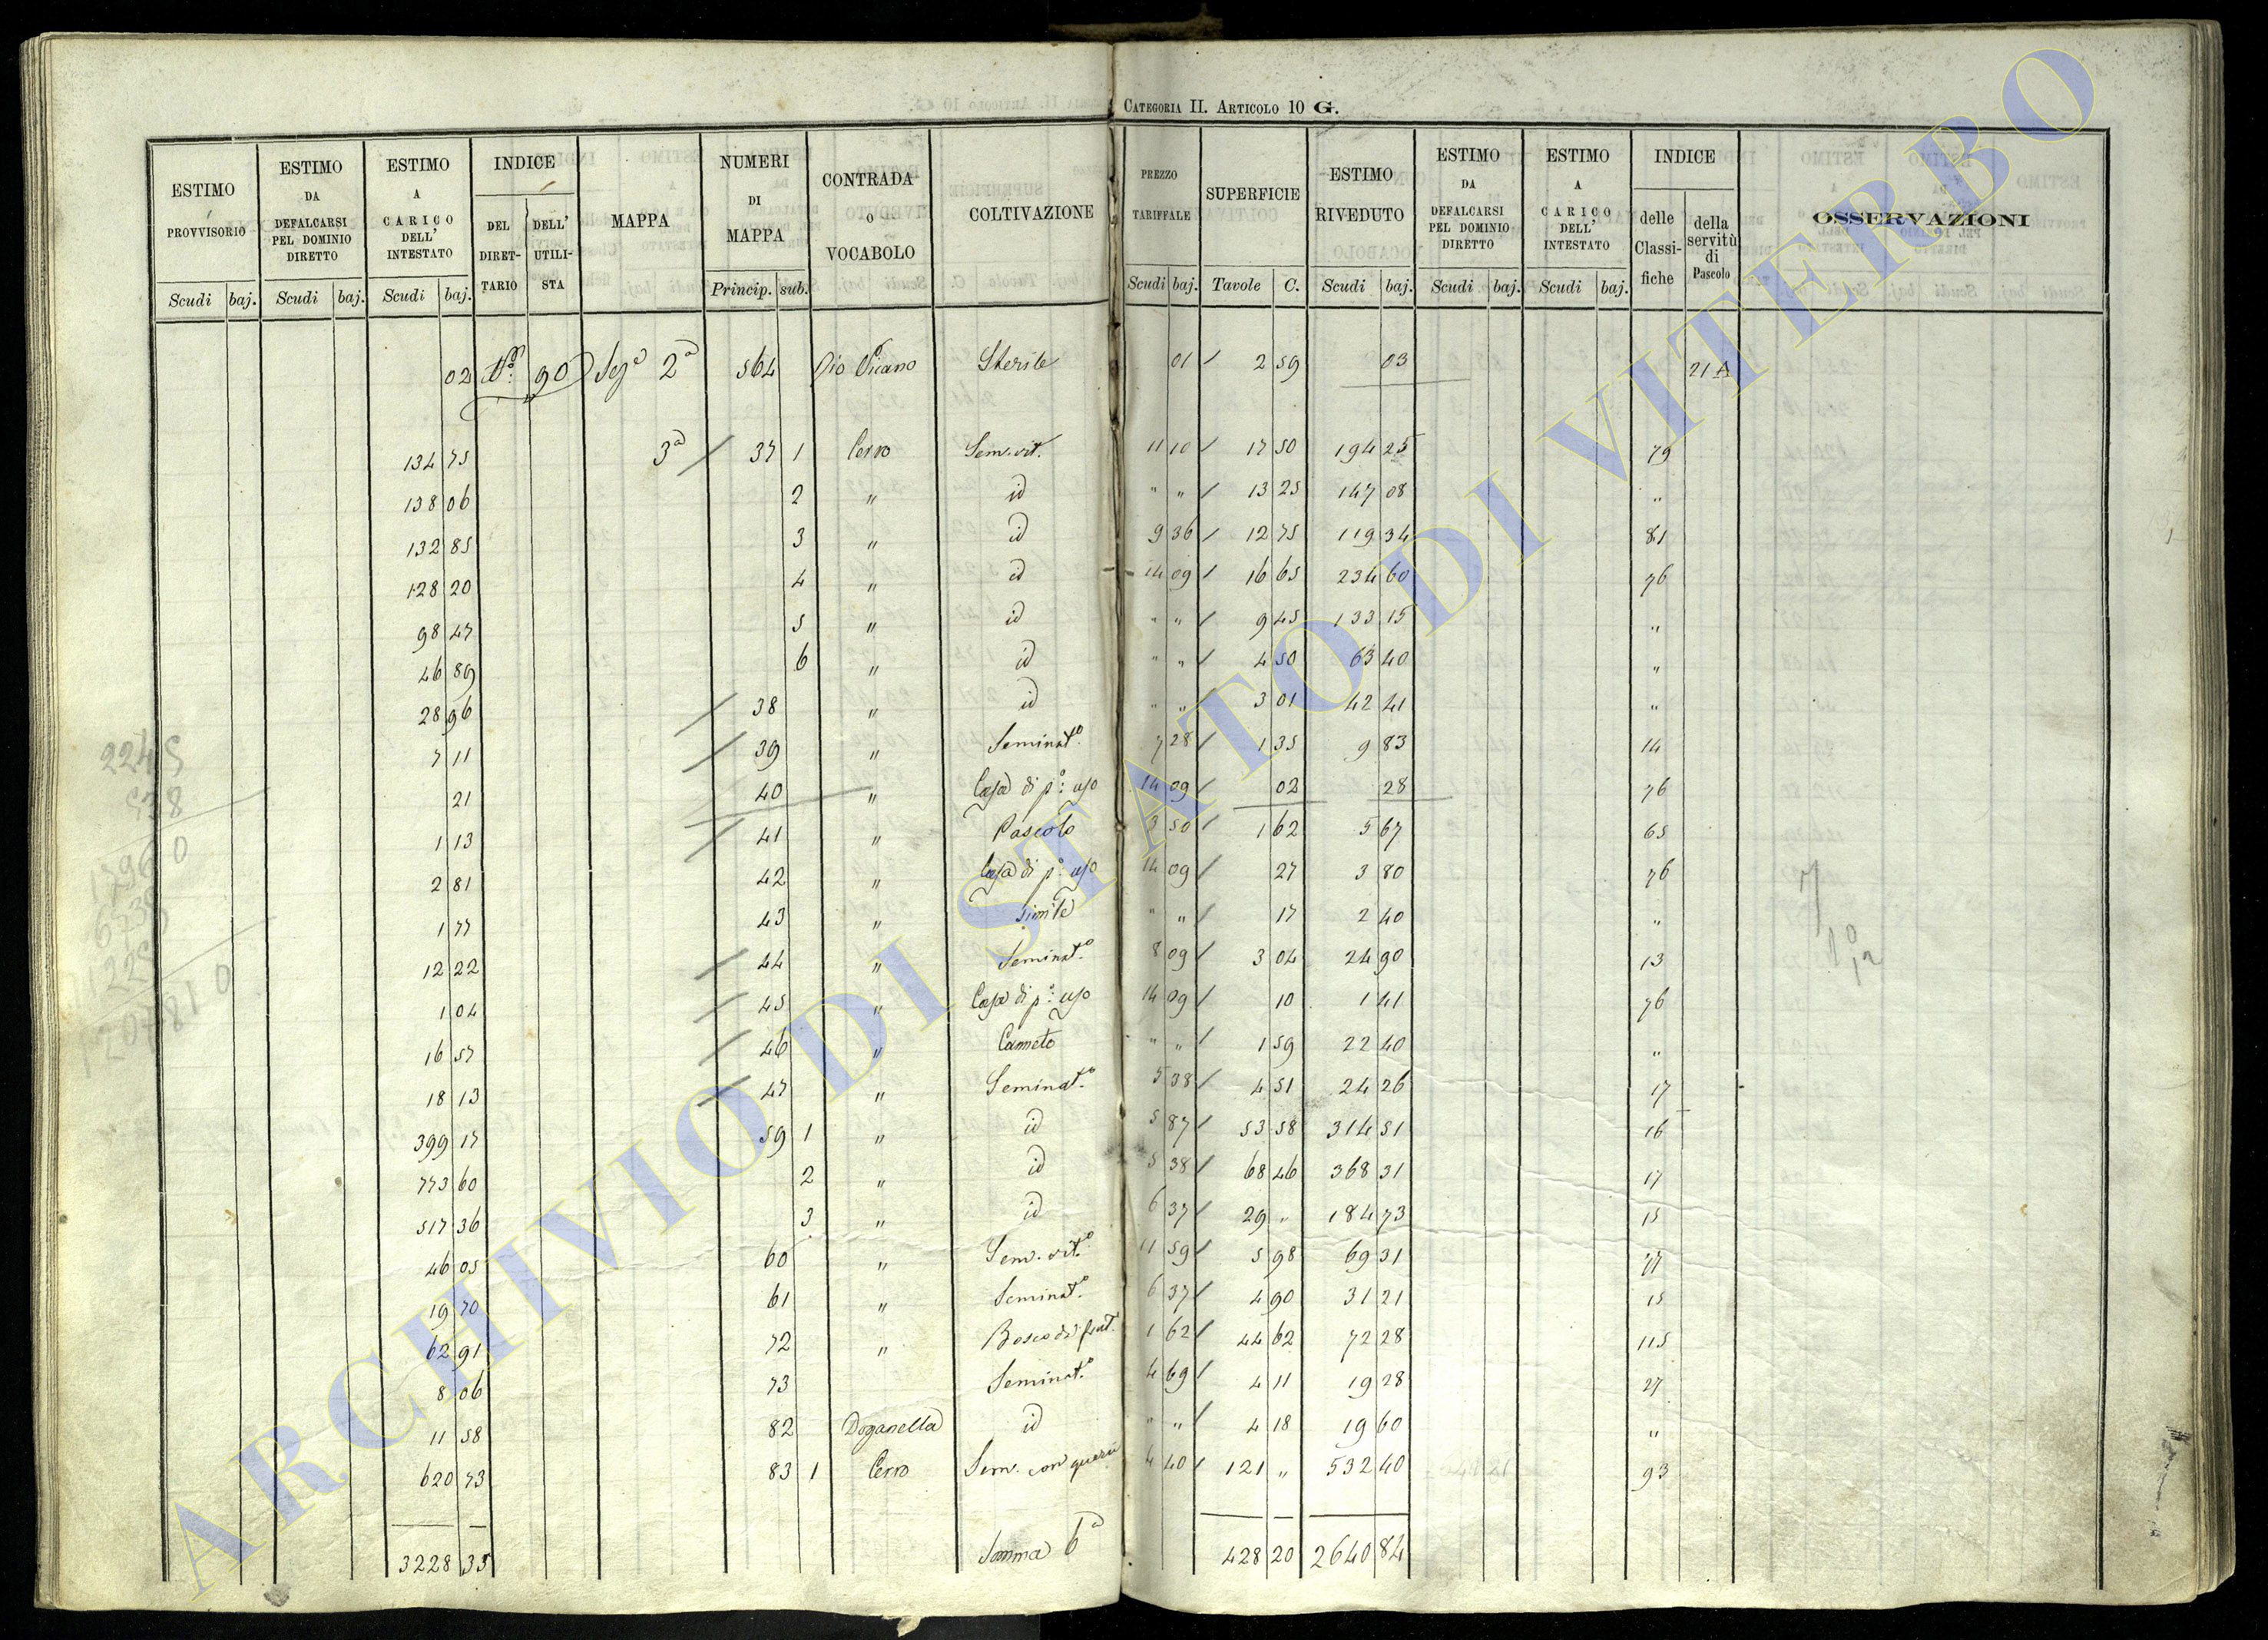 CATEGORIA II. ARTICOLO 10 G.
ESTIMO PROVVISORIO | ESTIMO DA DEFALCARSI PEL DOMINIO DIRETTO | ESTIMO A CARICO DELL' INTESTATO | INDICE | MAPPA | NUMERI DI MAPPA | CONTRADA O VOCABOLO | COLTIVAZIONE | PREZZO TARIFFALE | SUPERFICIE | ESTIMO RIVEDUTO | ESTIMO DA DEFALCARSI PEL DOMINIO DIRETTO | ESTIMO A CARICO DELL' INTESTATO | INDICE | OSSERVAZIONI
DEL DIRETTARIO | DELL' UTILISTA | delle Classifiche | della servitù di Pascolo
Scudi | baj. | Scudi | baj. | Scudi | baj. | Princip. | sub. | Scudi | baj. | Tavole | C. | Scudi | baj. | Scudi | baj. | Scudi | baj.
02 | 90 | Sez.ª 2ª | 564 | Rio Vicano | Sterile | 01 | 2 59 | 03 | 21 A
134 75 | 3ª | 37 | 1 | Cerro | Sem. vit. | 11 10 | 17 50 | 194 25 | 79
138 06 | 2 | " | id | " " | 13 25 | 147 08 | "
132 85 | 3 | " | id | 9 36 | 12 75 | 119 34 | 81
128 20 | 4 | " | id | 14 09 | 16 65 | 234 60 | 76
98 47 | 5 | " | id | " " | 9 45 | 133 15 | "
46 89 | 6 | " | id | " " | 4 50 | 63 40 | "
28 96 | 38 | " | id | " " | 3 01 | 42 41 | "
7 11 | 39 | " | Seminat.º | 7 28 | 1 35 | 9 83 | 14
21 | 40 | " | Casa di p.º uso | 14 09 | 02 | 28 | 76
1 13 | 41 | " | Pascolo | 3 50 | 1 62 | 5 67 | 65
2 81 | 42 | " | Casa di p.º uso | 14 09 | 27 | 3 80 | 76
1 77 | 43 | " | Simile | " " | 17 | 2 40 | "
12 22 | 44 | " | Seminat.º | 8 09 | 3 04 | 24 90 | 13
1 04 | 45 | " | Casa di p.º uso | 14 09 | 10 | 1 41 | 76
16 57 | 46 | " | Canneto | " " | 1 59 | 22 40 | "
18 13 | 47 | " | Seminat.º | 5 38 | 4 51 | 24 26 | 17
399 17 | 59 | 1 | " | id | 5 87 | 53 58 | 314 51 | 16
773 60 | 2 | " | id | 5 38 | 68 46 | 368 31 | 17
517 36 | 3 | " | id | 6 37 | 29 " | 184 73 | 15
46 05 | 60 | " | Sem. vit.º | 11 59 | 5 98 | 69 31 | 77
19 70 | 61 | " | Seminat.º | 6 37 | 4 90 | 31 21 | 15
62 91 | 72 | " | Bosco da frut. | 1 62 | 44 62 | 72 28 | 115
8 06 | 73 | " | Seminat.º | 4 69 | 4 11 | 19 28 | 27
11 58 | 82 | Doganella | id | " " | 4 18 | 19 60 | "
620 73 | 83 | 1 | Cerro | Sem. con querci | 4 40 | 121 " | 532 40 | 93
3228 35 | Somma 6ª | 428 20 | 2640 84
ARCHIVIO DI STATO DI VITERBO